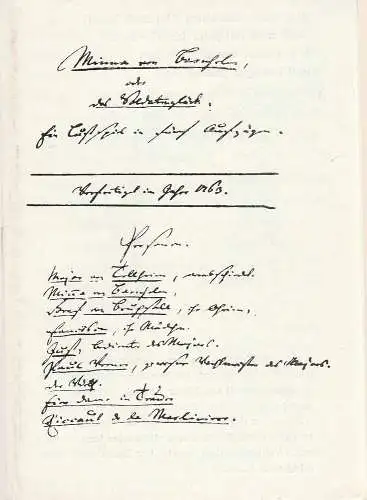 Minna von Barnhelm,
oder
das Soldatenglück.
Ein Lustspiel in fünf Aufzügen.
Verfertiget im Jahre 1763.
Personen.
Major von Tellheim, verabschiedet.
Minna von Barnhelm,
Graf von Bruchsall, ihr Oheim,
Franciska, ihr Mädchen.
Just, Bedienter des Majors.
Paul Werner, gewesener Wachtmeister des Majors.
der Wirth.
Eine Dame in Trauer.
Riccaut de la Marliniere.